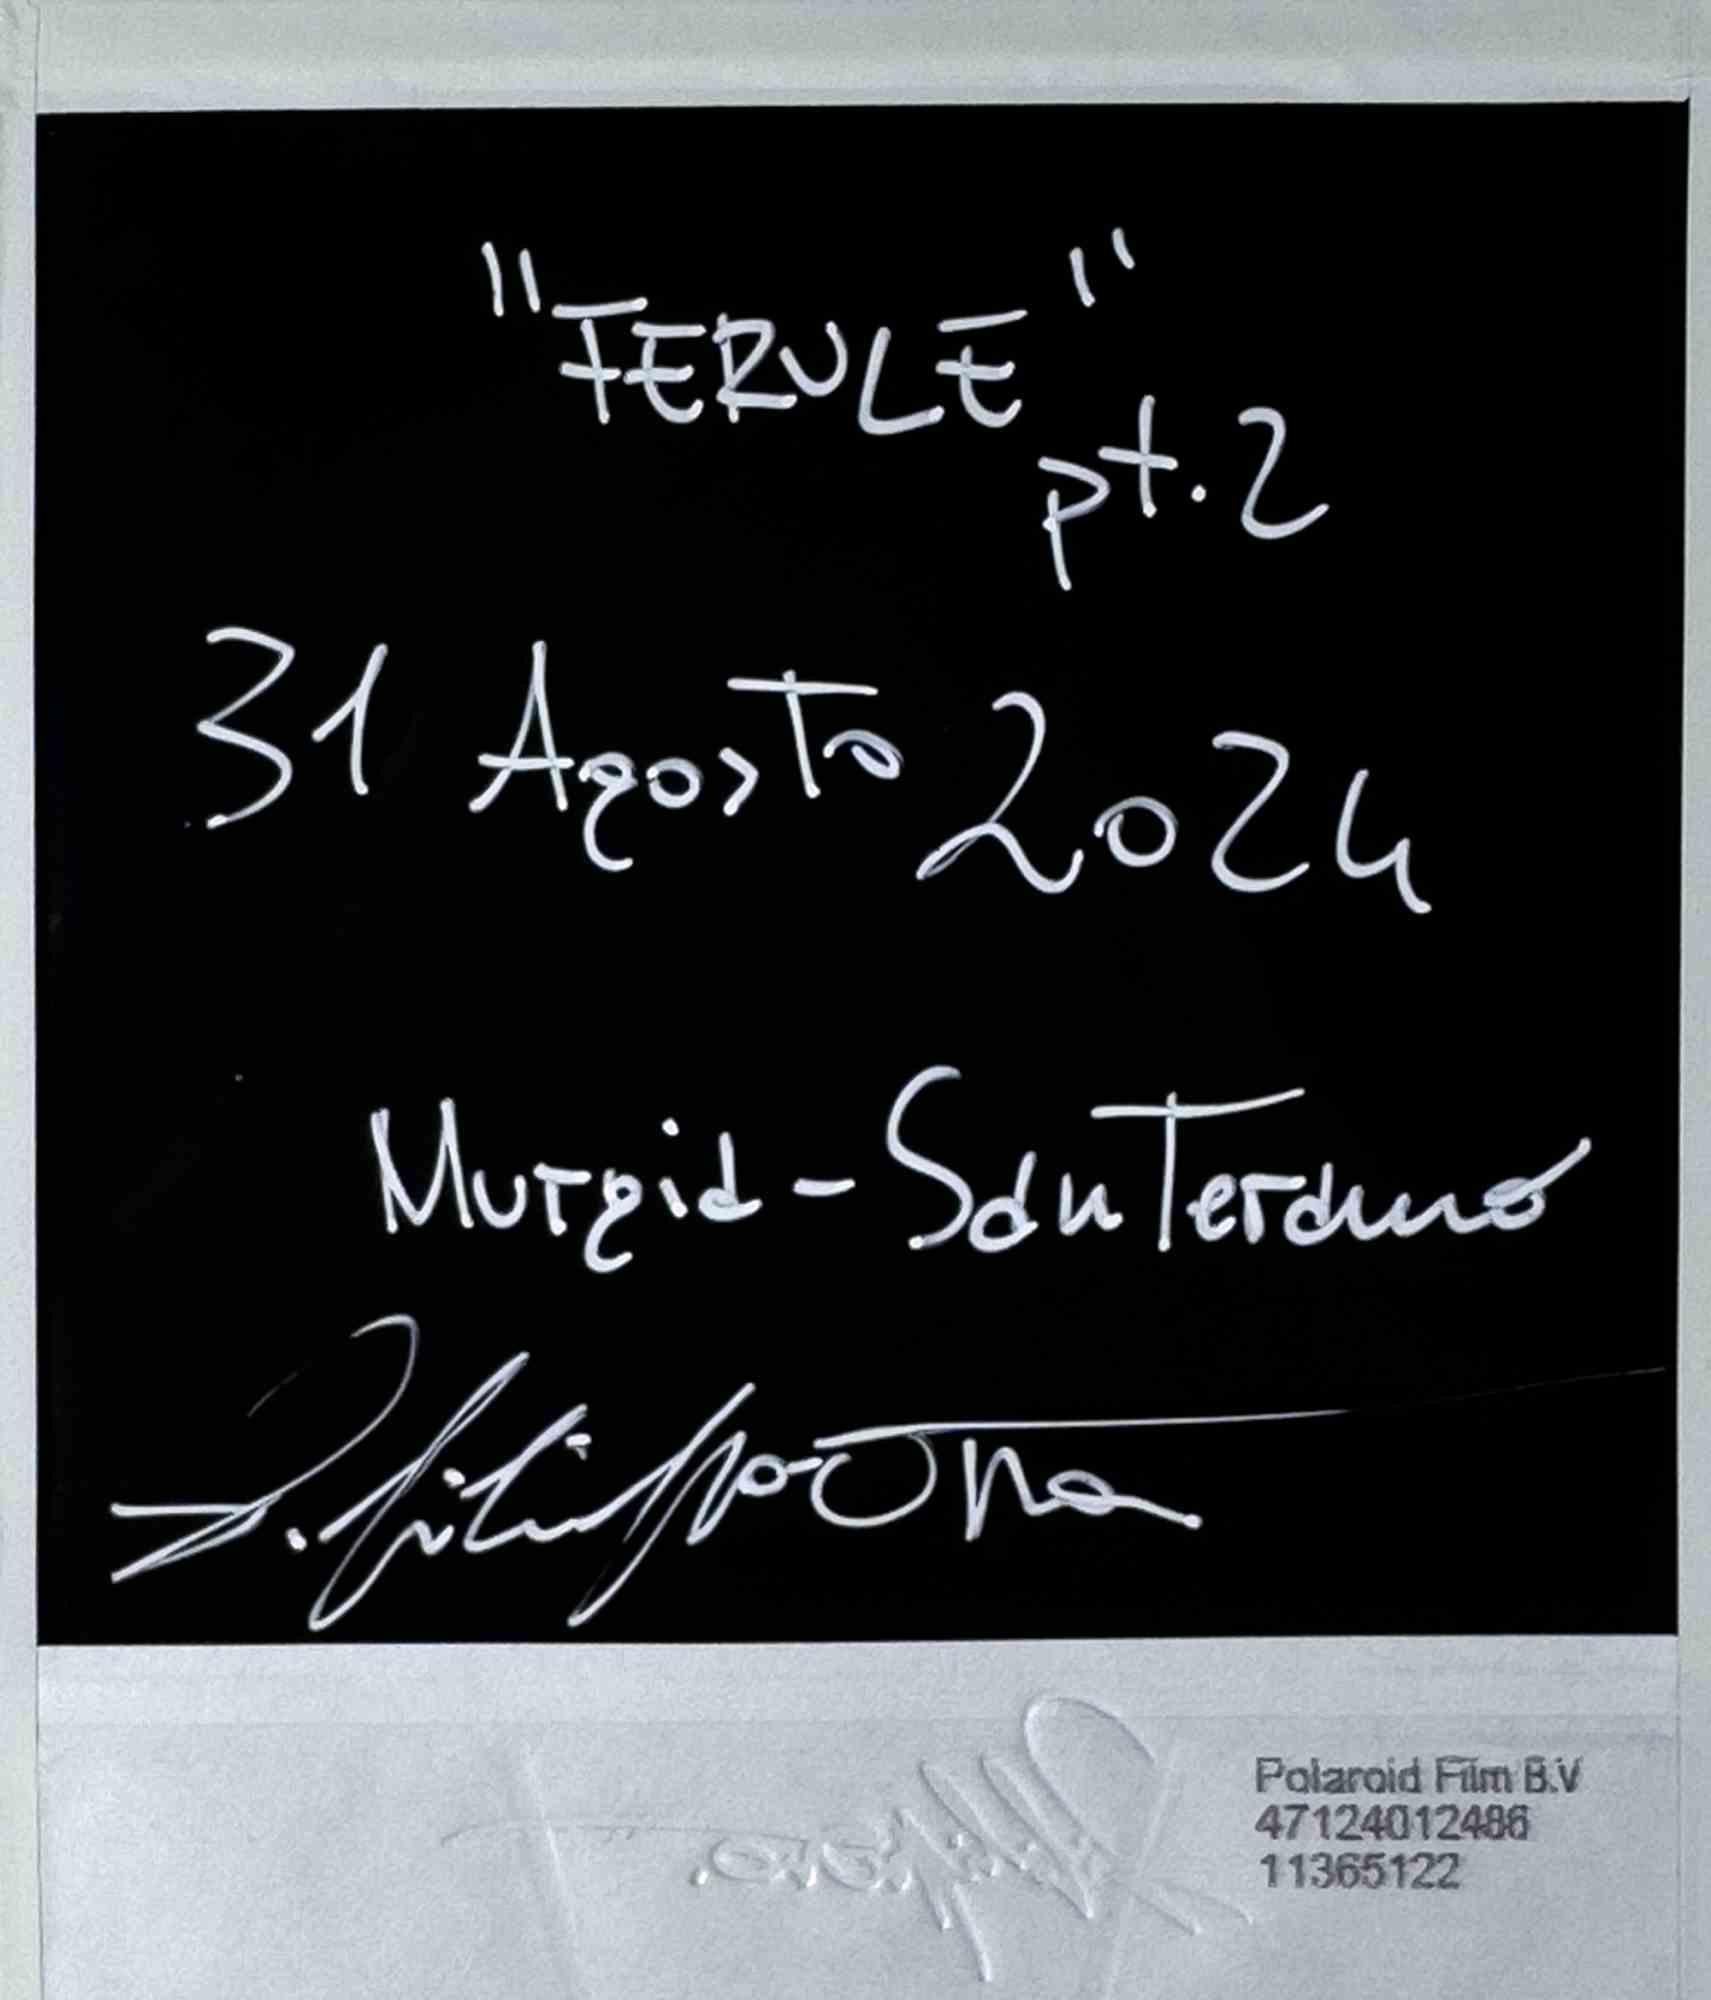 "FERULE"
pt.2
31 Agosto 2024
Murgia - Santeramo
Polaroid Film B.V
47124012486
11365122